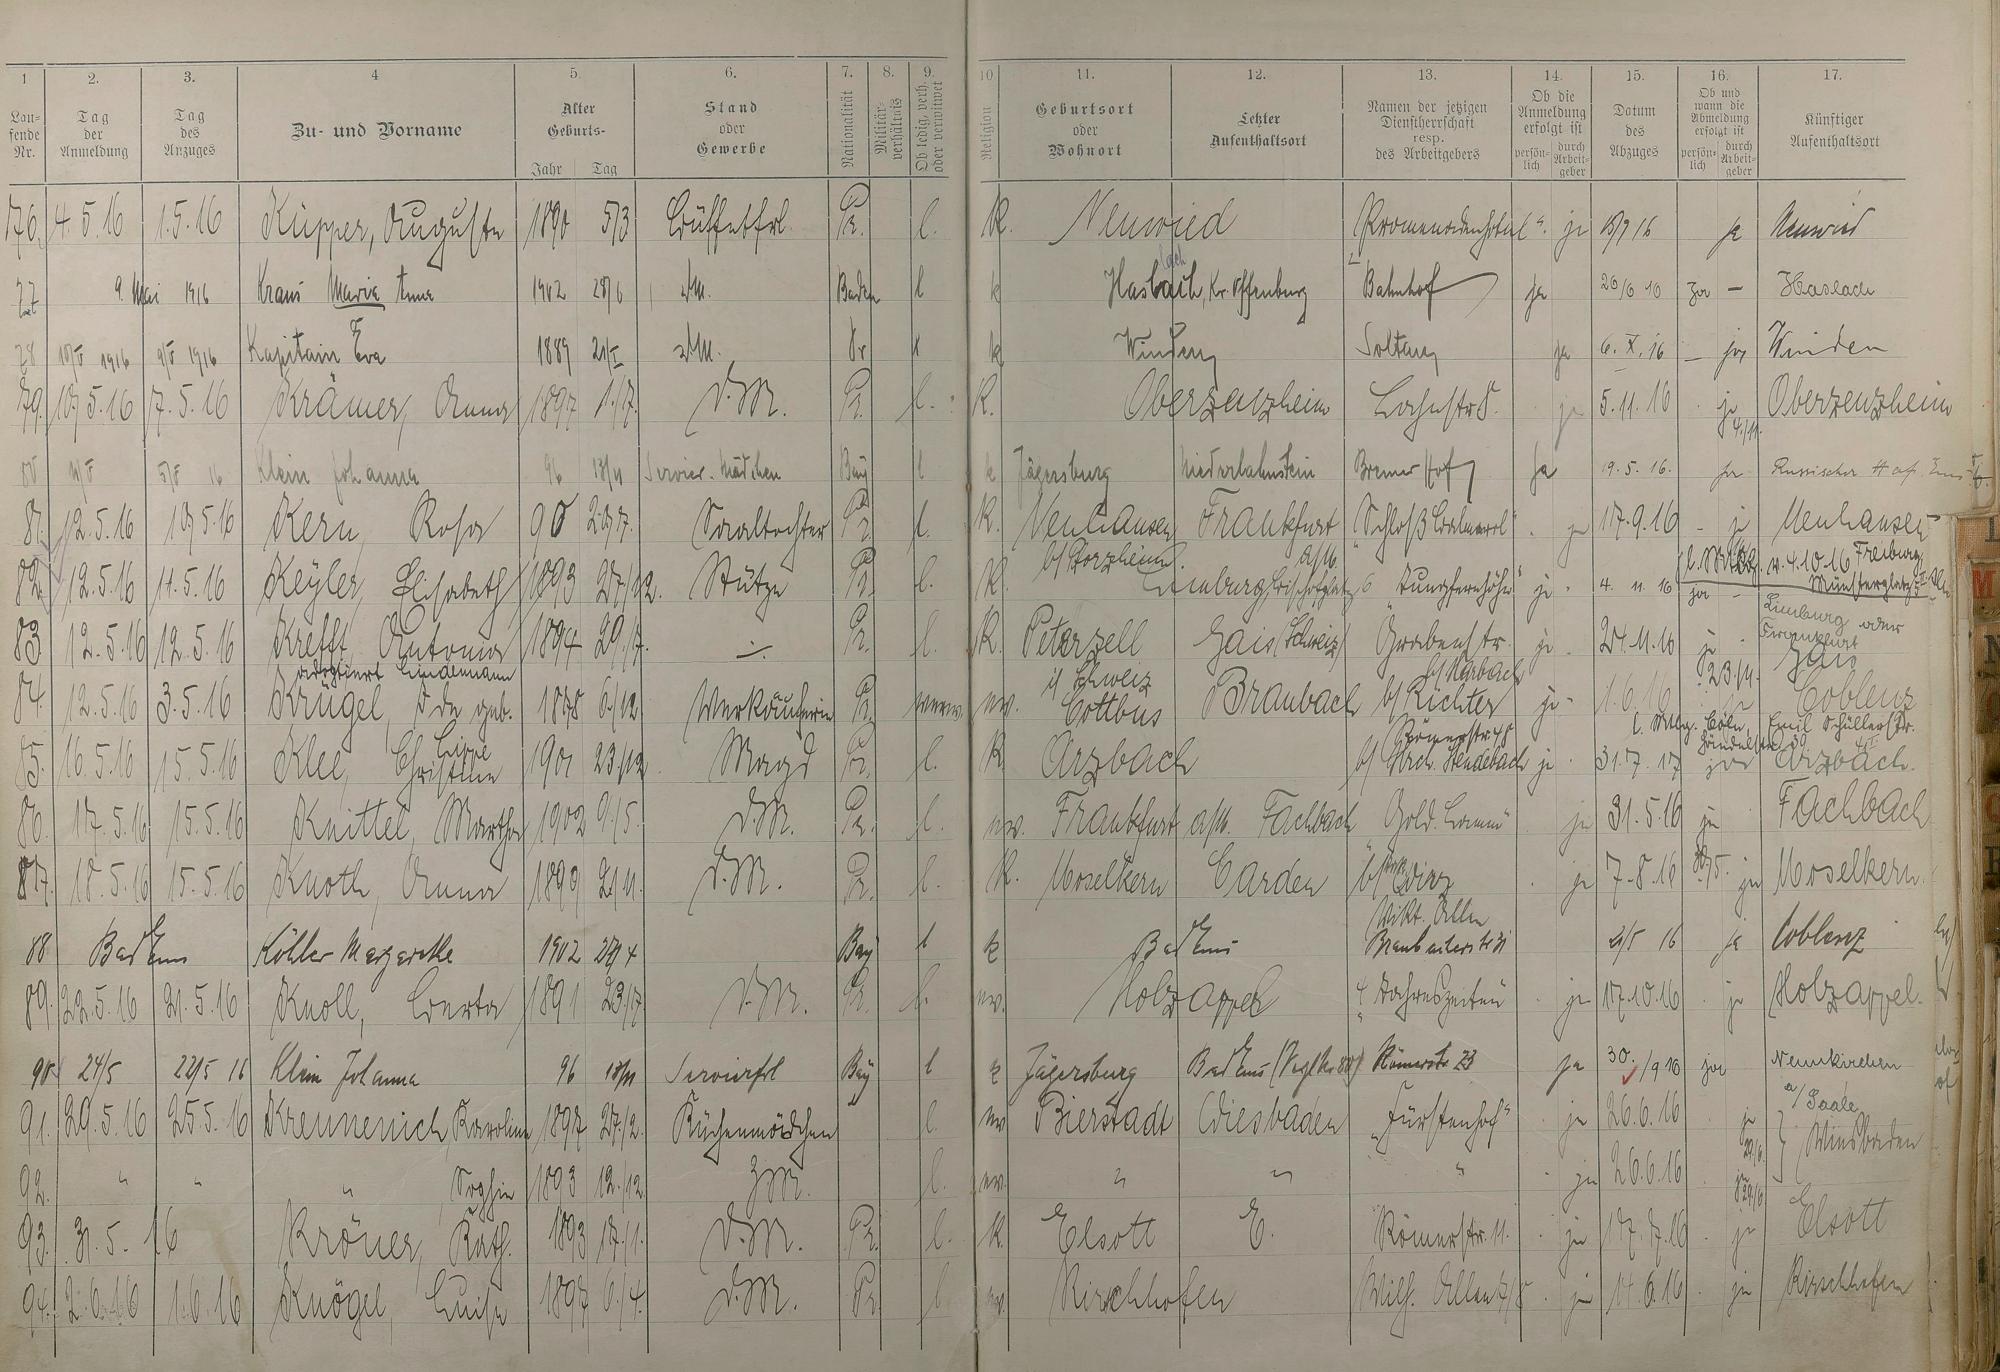 1 2. 3. 4 5. 6. 7. 8. 9. 10 11. 12. 13. 14. 15. 16. 17.
Lau-
fende
Nr.
Tag
der
Anmeldung
Tag
des
Anzuges
Zu- und Vorname
Alter
Geburts-
Jahr Tag
Stand
oder
Gewerbe
Nationalität
Militär-
verhältnis
Ob ledig, verh.
oder verwitwet
Religion
Geburtsort
oder
Wohnort
Letzter
Aufenthaltsort
Namen der jetzigen
Dienstherrschaft
resp.
des Arbeitgebers
Ob die
Anmeldung
erfolgt ist
persön-
lich
durch
Arbeit-
geber
Datum
des
Abzuges
Ob und
wann die
Abmeldung
erfolgt ist
persön-
lich
durch
Arbeit-
geber
Künftiger
Aufenthaltsort
76. 4.5.16 1.5.16 Küpper, Auguste 1890 5/3 Büffetfrl. Pr. l. K. Neuwied Promenadenhotel". ja 15/7 16 ja Neuwied
77 9. Mai 1916 Kraus Marie Anna 1902 28/6 DM. Baden l k Hasbach, Kr. Offenburg lach Bahnhof ja 26/6 16 ja — Haslach
78 10/5 1916 9/5 1916 Kapitain Eva 1889 21/5 DM. Pr l k Winden Soltau ja 6. X. 16 — ja Winden
79. 10.5.16 7.5.16 Krämer, Anna 1897 1./7. D.M. Pr. l. K. Oberzeuzheim Lahnstr 8. ja 5.11.16 ja 4./11. Oberzeuzheim
80 5/5 16 Klein Johanna 96 13/11 Servier-Mädchen Bay l k Jägersburg Niederlahnstein Bremer Hof ja 19.5.16. ja Russischer Hof, Ems
81. 12.5.16 10.5.16 Kern, Rosa 90 20/7. Saaltochter Pr. l. K. Neuhausen b/Pforzheim. Frankfurt a/M. "Schloß Balmoral" ja 17.9.16 - ja Neuhausen
82. 12.5.16 11.5.16 Keyler, Elisabeth 1893 27/12. Stütze Pr. l. K. Limburg, Bischofsplatz 6 "Jungfernhöhe" ja 4. 11 16 ja - v. 4.10.16 Freiburg, Münsterplatz
Limburg oder
Frankfurt
83 12.5.16 12.5.16 Krefft, Antonia 1894 29./7. Pr. l. K. Peterzell Gais (Schweiz) Grabenstr. b/Marbach ja 24.11.16 ja 23/11. Gais
adoptiert Lindemann i/Schweiz
84. 12.5.16 3.5.16 Krügel, Ida geb. Lippe 1878 6/12 Verkäuferin Pr. verw. ev. Cottbus Braubach b/Richter Römerstr. 48 ja 1.6.16 Coblenz Emil Schüllerstr.
85. 16.5.16 15.5.16 Klee, Christine 1901 23/12. Magd Pr. l. K. Arzbach b/ Hch. Stendebach ja 31.7.17 ja Arzbach.
86. 17.5.16 15.5.16 Knittel, Martha 1902 9./5. D.M. Pr. l. ev. Frankfurt a/M. Fachbach Gold. Lamm" ja 31.5.16 ja Fachbach
87. 18.5.16 15.5.16 Knoth, Anna 1899 21/11. D.M. Pr. l. K. Moselkern Carden ja 7.8.16 ja Moselkern.
88 Bad Ems Köhler Margarethe 1902 Bay l k Bad Ems Vikt. Allee Braubacherstr 31 4/5 16 ja Coblenz
89. 22.5.16 21.5.16 Knoll, Berta 1891 23/7. D.M. Pr. l. ev. Holzappel "4 Jahreszeiten ja 17.10.16 ja Holzappel.
90 24/5 22/5 16 Klein Johanna 96 13/11 Servierfrl Bay l k Jägersburg Bad Ems (Vergl. Nr 80) Römerstr 23 ja 30./9 16 ja Neunkirchen a/Saale
91. 29.5.16 25.5.16 Krennerich, Karoline 1897 27/12. Küchenmädchen " l. ev Bierstadt Wiesbaden "Fürstenhof" ja 26.6.16 ja 29/6. } Wiesbaden
92. " " " , Sophie 1893 12./12. ZM. l. ev. " " " ja 26.6.16 ja 29/6
93. 31.5.16 Kröner, Kath. 1893 17./1. D.M. Pr. l. K. Elsoff E. Römerstr. 11. ja 17.7.16 ja Elsoff
94. 2.6.16 1.6.16 Knögel, Luise 1897 6./4. D.M. Pr. l. ev. Kirschhofen Wilh. Allee 7/8 ja 14.6.16 ja Kirschhofen